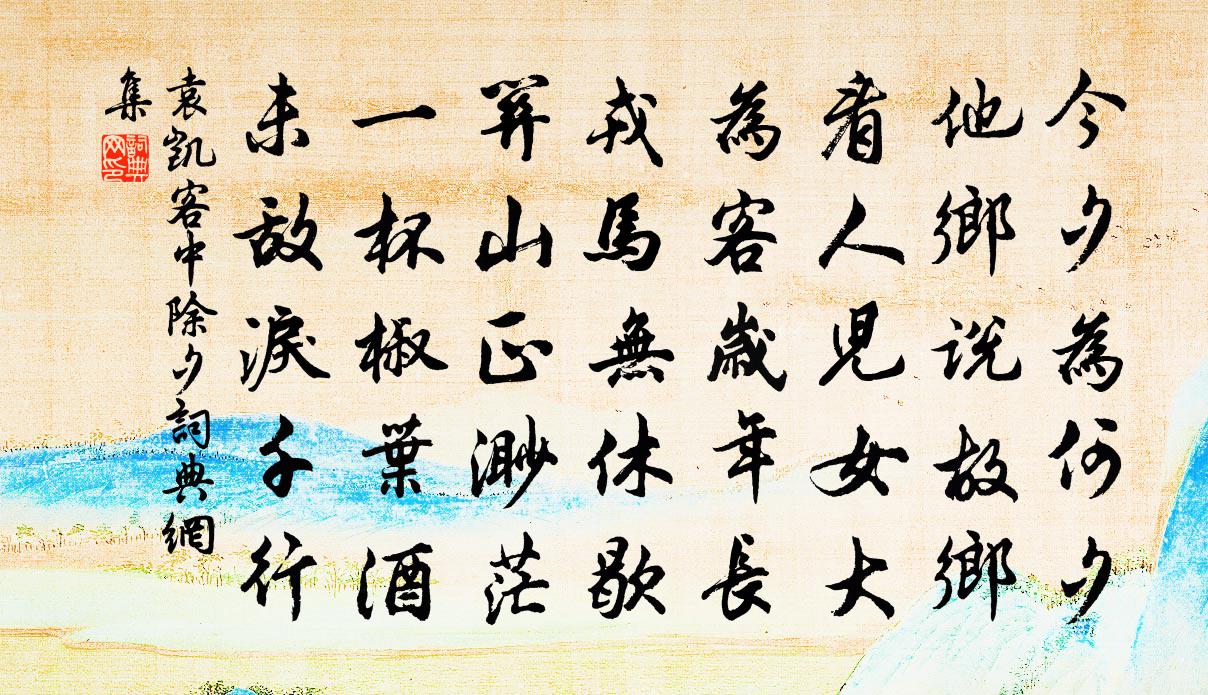 今夕為何夕
他鄉說故鄉
看人兒女大
為客歲年長
戎馬無休歇
關山正渺茫
一杯椒葉酒
未敵淚千行
袁凱客中除夕詞典網
集
詞典
网印